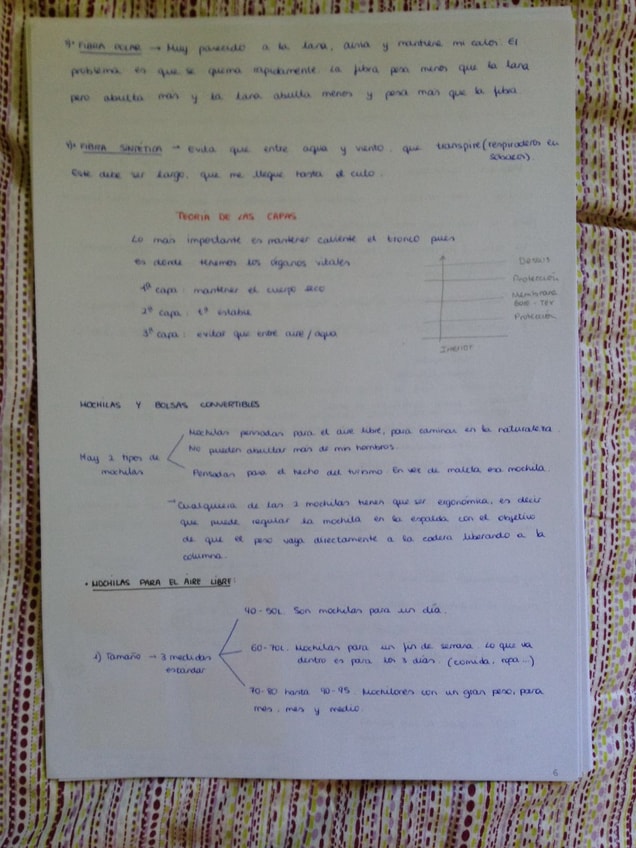 FIBRA POLAR → Muy parecido a la lana, aisla y mantiene mi calor. El
problema es que se quema rapidamente. La fibra pesa menos que la lana
pero abulta más y la lana abulta menos y pesa más que la fibra.
FIBRA SINTÉTICA → Evita que entre agua y viento, que transpire (respiraderos en
sobacos).
Este debe ser largo, que me llegue hasta el culo.
TEORIA DE LAS CAPAS
Lo más importante es mantener caliente el tronco pues
es donde tenemos los órganos vitales
1ª capa: mantener el cuerpo seco
2ª capa: tª estable
3ª capa: evitar que entre aire / agua
Protección
Membrana
Gore-Tex
Protección
Interior
MOCHILAS Y BOLSAS CONVERTIBLES
Hay 2 tipos de
mochilas
Mochilas pensadas para el aire libre, para caminar en la naturaleza.
No pueden abultar más de mis hombros.
Pensadas para el hecho del turismo. En vez de maleta esa mochila.
→ Cualquiera de las 2 mochilas tienen que ser ergonómica, es decir
que puede regular la mochila en la espalda con el objetivo
de que el peso vaya directamente a la cadera liberando a la
columna.
• MOCHILAS PARA EL AIRE LIBRE:
1) Tamaño → 3 medidas
estandar
40-50L. Son mochilas para un día.
60-70L. Mochilas para un fin de semana. Lo que va
dentro es para los 3 días. (comida, ropa...)
70-80 hasta 90-95. Mochilones con un gran peso, para
mes, mes y medio.
6